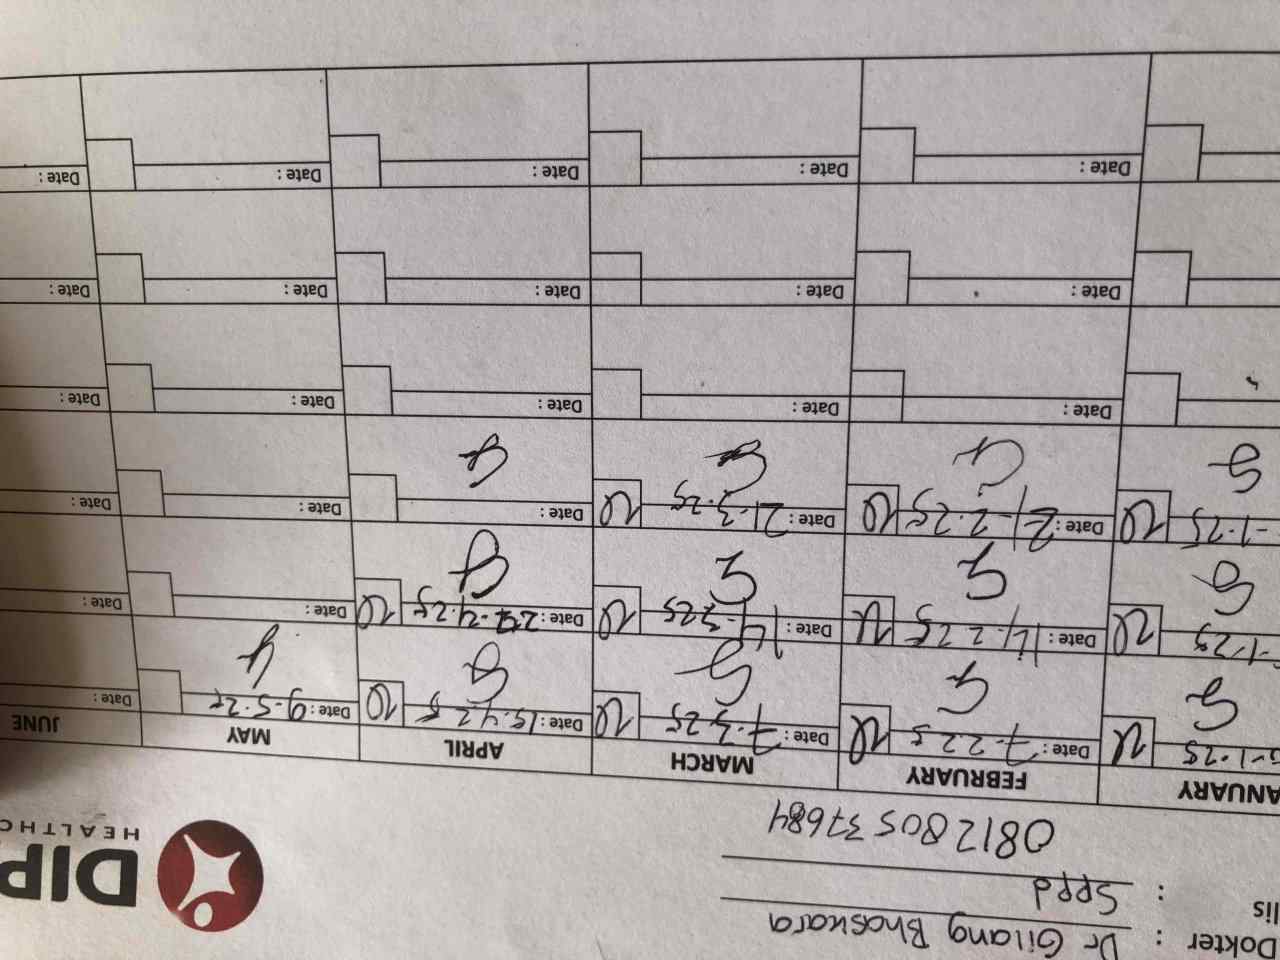 Dokter : Dr Gilang Bhaskara
lis : Sppd
081280537684
DIP
HEALTHC
ANUARY FEBRUARY MARCH APRIL MAY JUNE
-1.25 Date : 7.2 25 Date : 7.3.25 Date : 15.4 25 Date : 9-5.25 Date :
-1.25 Date : 14.2 25 Date : 14-3 25 Date : Date : Date :
-1.25 Date : 21-2.25 Date : 21.3.25 Date : Date : Date :
Date : Date : Date : Date : Date :
Date : Date : Date : Date : Date :
Date : Date : Date : Date : Date :